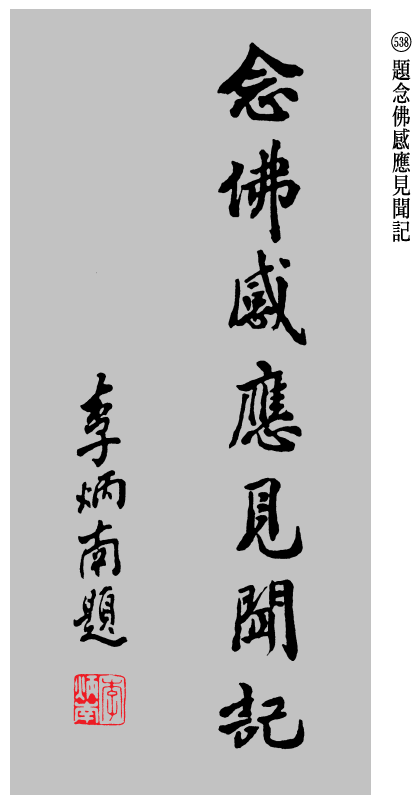 538 題念佛感應見聞記
念佛感應見聞記
李炳南題
李炳南